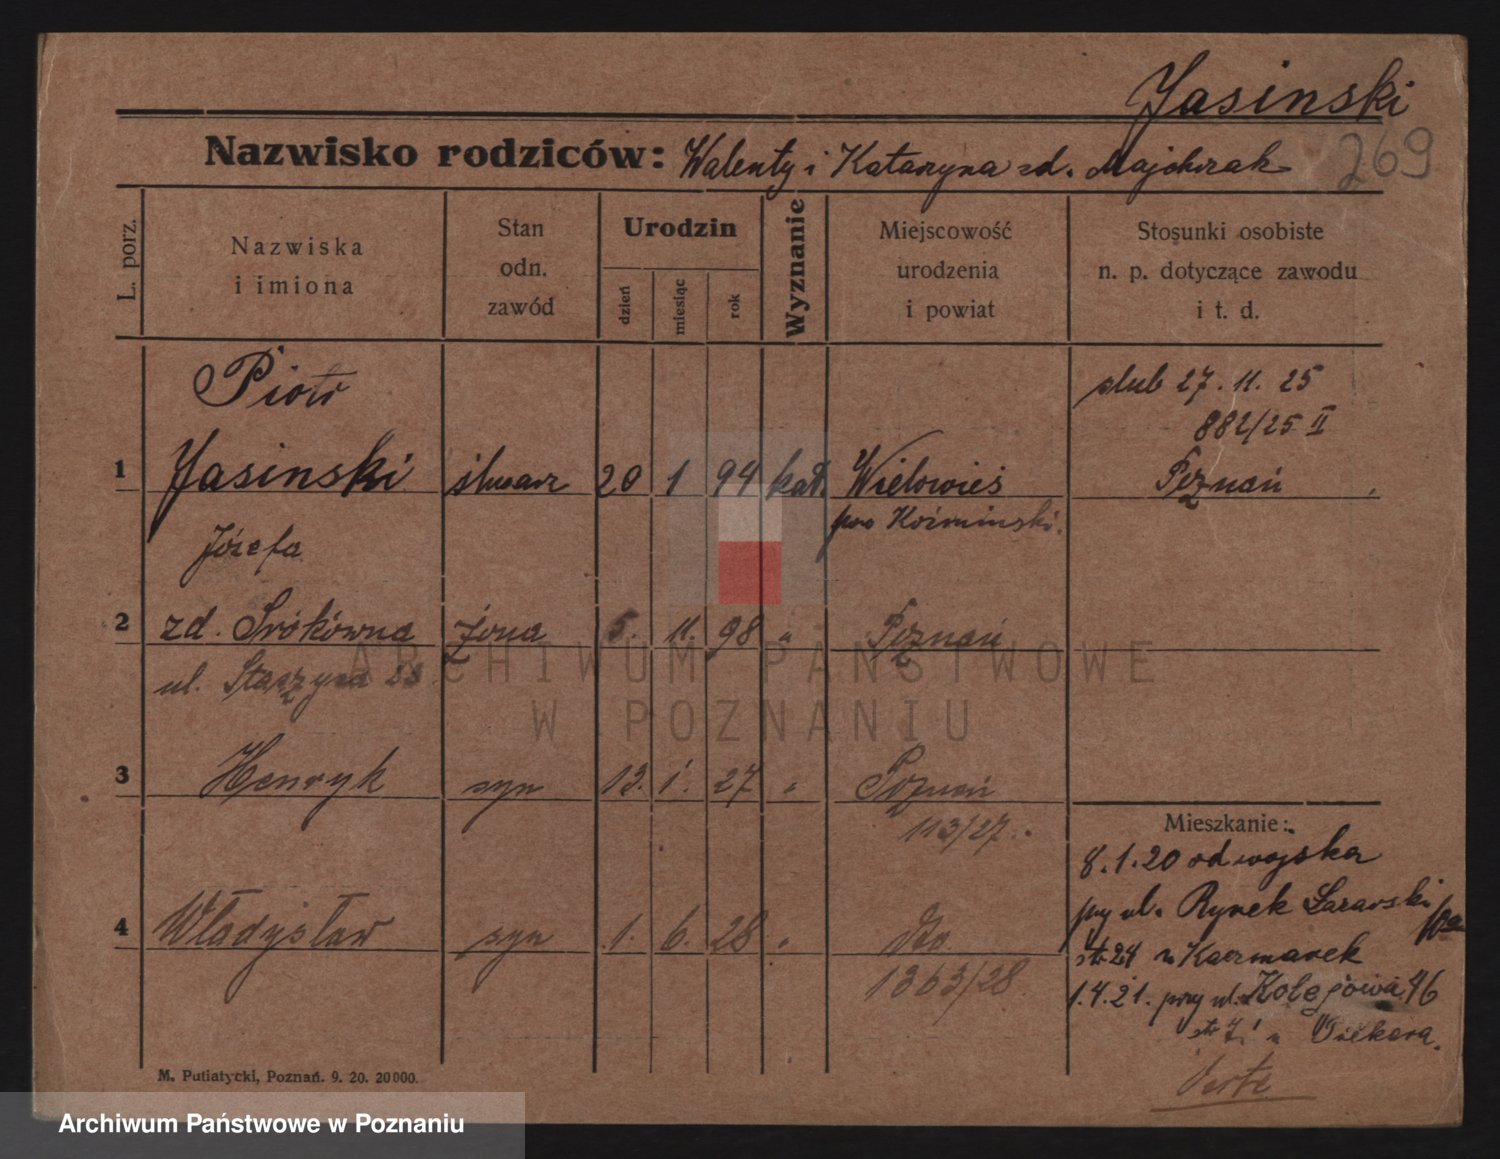 Jasinski
Nazwisko rodziców: Walenty i Katarzyna zd. Majchrzak
269
L. porz.
Nazwiska i imiona
Stan odn. zawód
Urodzin
dzień
miesiąc
rok
Wyznanie
Miejscowość urodzenia i powiat
Stosunki osobiste n. p. dotyczące zawodu i t. d.
Piotr
ślub 27. 11. 25
882/25 II
1 Jasinski ślusarz 20 1 94 kat. Wielowieś Poznań
pow Koźminski.
Józefa
2 zd. Srokówna żona 5. 11. 98 " Poznań
ul. Staszyca
3 Henryk syn 13. 1. 27 " Poznań
113/27.
Mieszkanie:
8.1.20 od wojska
przy ul. Rynek Łazarski
4 Władysław syn 1. 6. 28 " dto
str 24 u Kaczmarek
1363/28
1.4.21. przy ul. Kolejowa 46
str 7. u
Verte
M. Putiatycki, Poznań. 9. 20. 20000.
ARCHIWUM PAŃSTWOWE
W POZNANIU
Archiwum Państwowe w Poznaniu